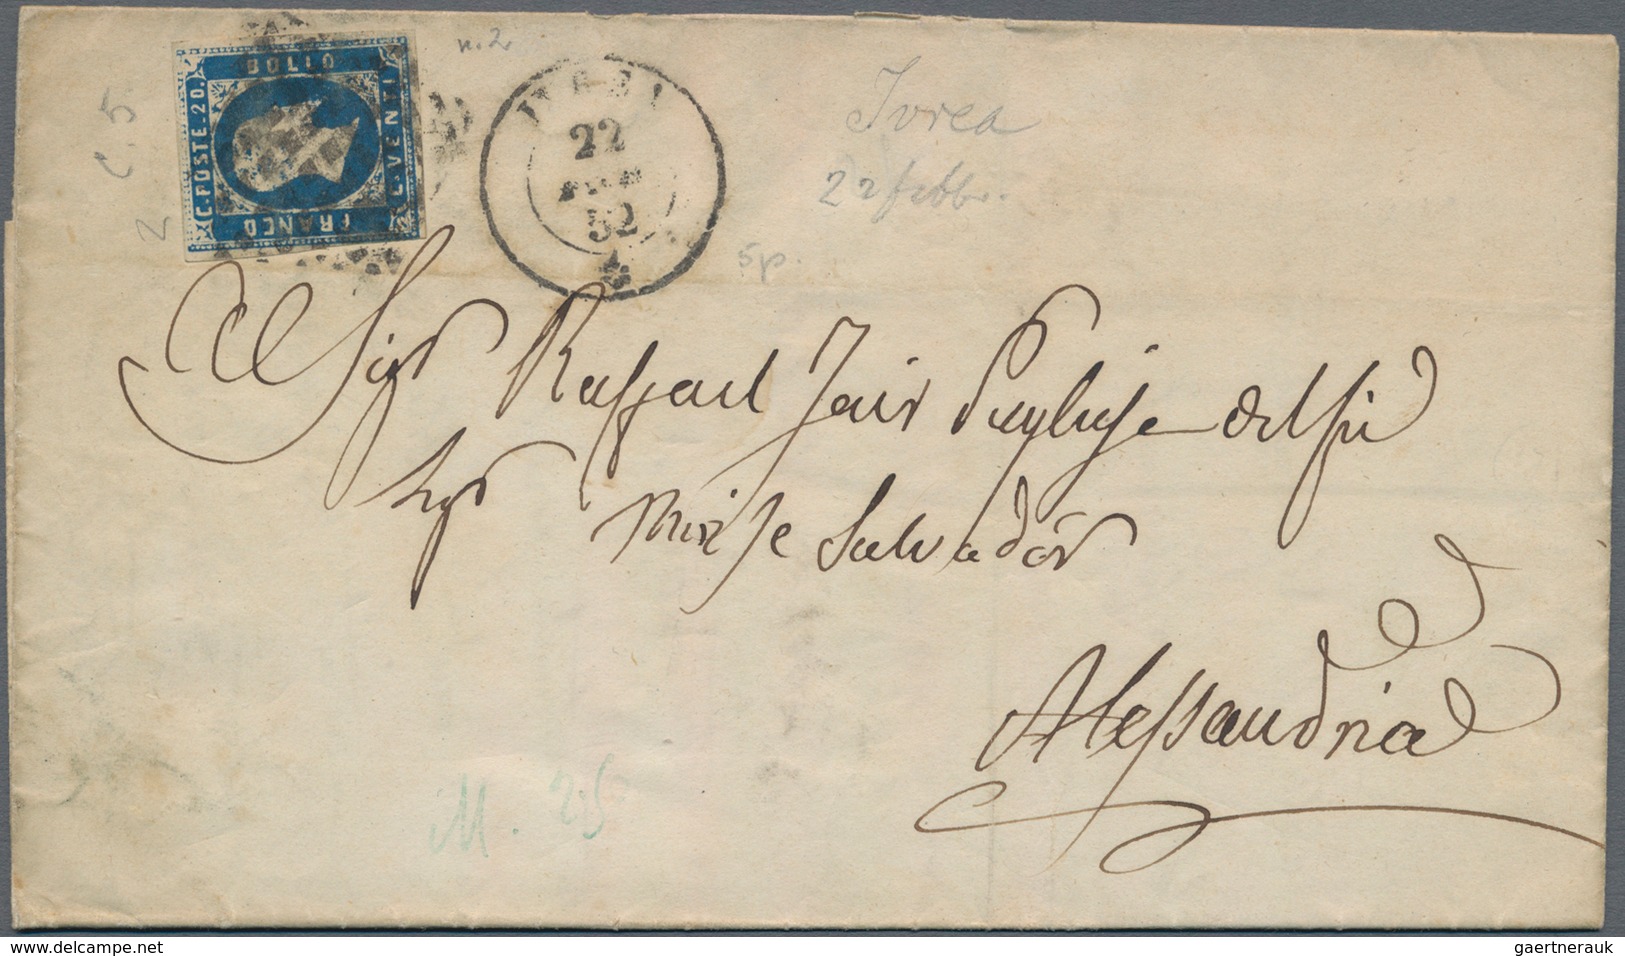 n. 2
BOLLO
C. POSTE. 20.
C. VENTI
FRANCO
C. 5
2
22
52
Ivrea
22 febbr.
5p.
Al Sigr Raffael Jair Pugliese del fù
Sigr Moise Salvador
Alessandria
M. 25
www.delcampe.net
gaertnerauk